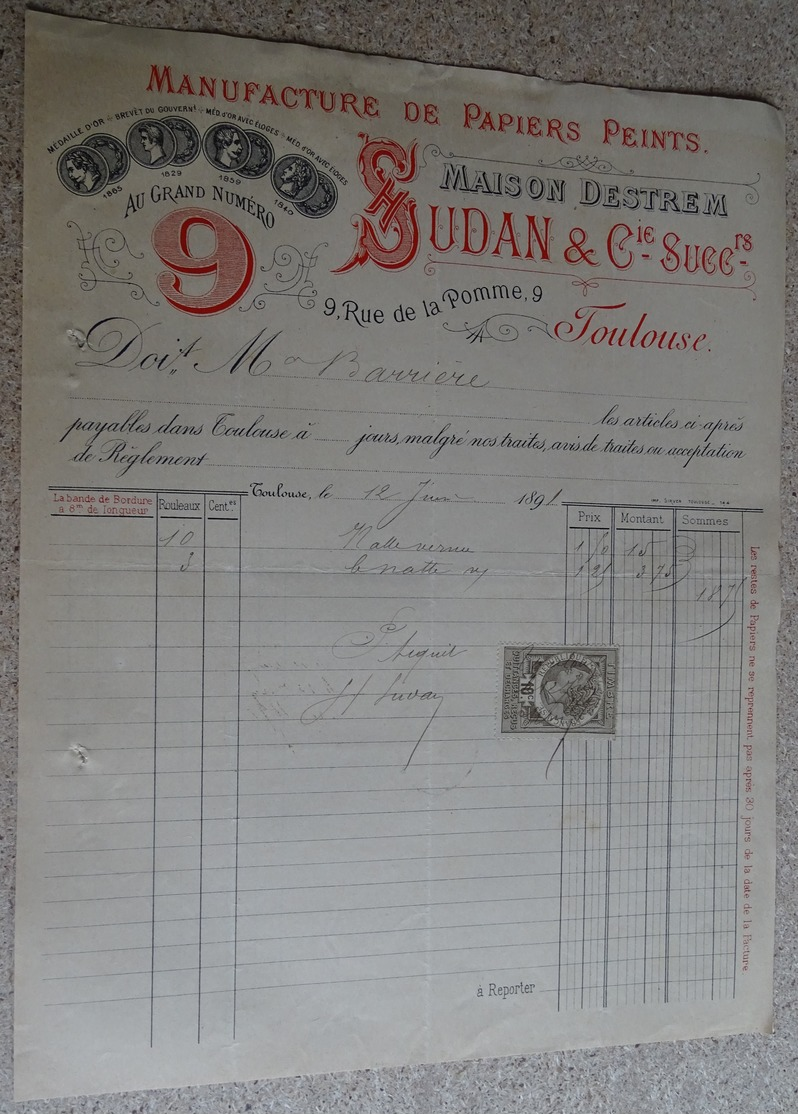 MANUFACTURE DE PAPIERS PEINTS.
MÉDAILLE D'OR * BREVET DU GOUVERNt * MÉD. D'OR AVEC ÉLOGES * MÉD. D'OR AVEC ÉLOGES
1865 1829 1859 1840
AU GRAND NUMÉRO
9
MAISON DESTREM
H SUDAN & Cie Succrs
9, Rue de la Pomme, 9
Toulouse.
Doit M Barrière
les articles ci-après
payables dans Toulouse à jours, malgré nos traites, avis de traites ou acceptation
de Règlement
Toulouse, le 12 Juin 1891
La bande de Bordure
a 8m de longueur
Rouleaux Centes
Prix Montant Sommes
10 Natte vernie 1 50 15
3 natte 1 25 3 75
18 75
Acquit
H Sudan
TIMBRE
QUITTANCES REÇUS
ET DÉCHARGES
10c
RÉPUBLIQUE FRANÇAISE
à Reporter
Les restes de Papiers ne se reprennent pas après 30 jours de la date de la Facture.